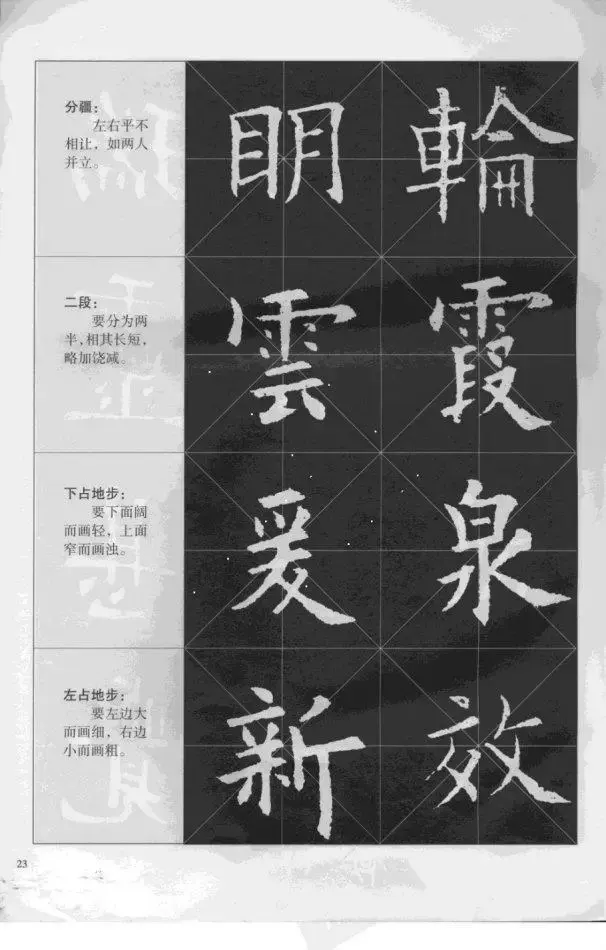 分疆：
左右平不
相让，如两人
并立。
眀 輪
二段：
要分为两
半，相其长短，
略加饶减。
雲 霞
下占地步：
要下面阔
而画轻，上面
窄而画浊。
爰 泉
左占地步：
要左边大
而画细，右边
小而画粗。
新 效
23